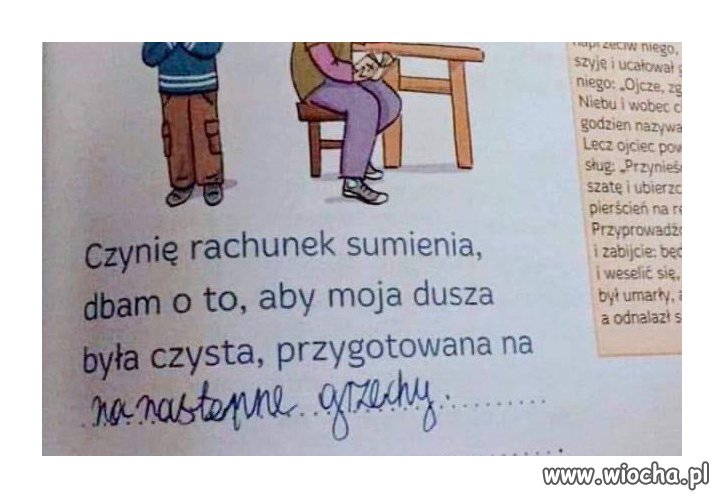 naprzeciw niego,
szyję i ucałował
niego: „Ojcze, zg
Niebu i wobec ci
godzien nazywa
Lecz ojciec pow
sług: „Przynieś
szatę i ubierzc
pierścień na rę
Przyprowadźc
i zabijcie: będ
i weselić się,
był umarły, a
a odnalazł s
Czynię rachunek sumienia,
dbam o to, aby moja dusza
była czysta, przygotowana na
na następne grzechy.
www.wiocha.pl